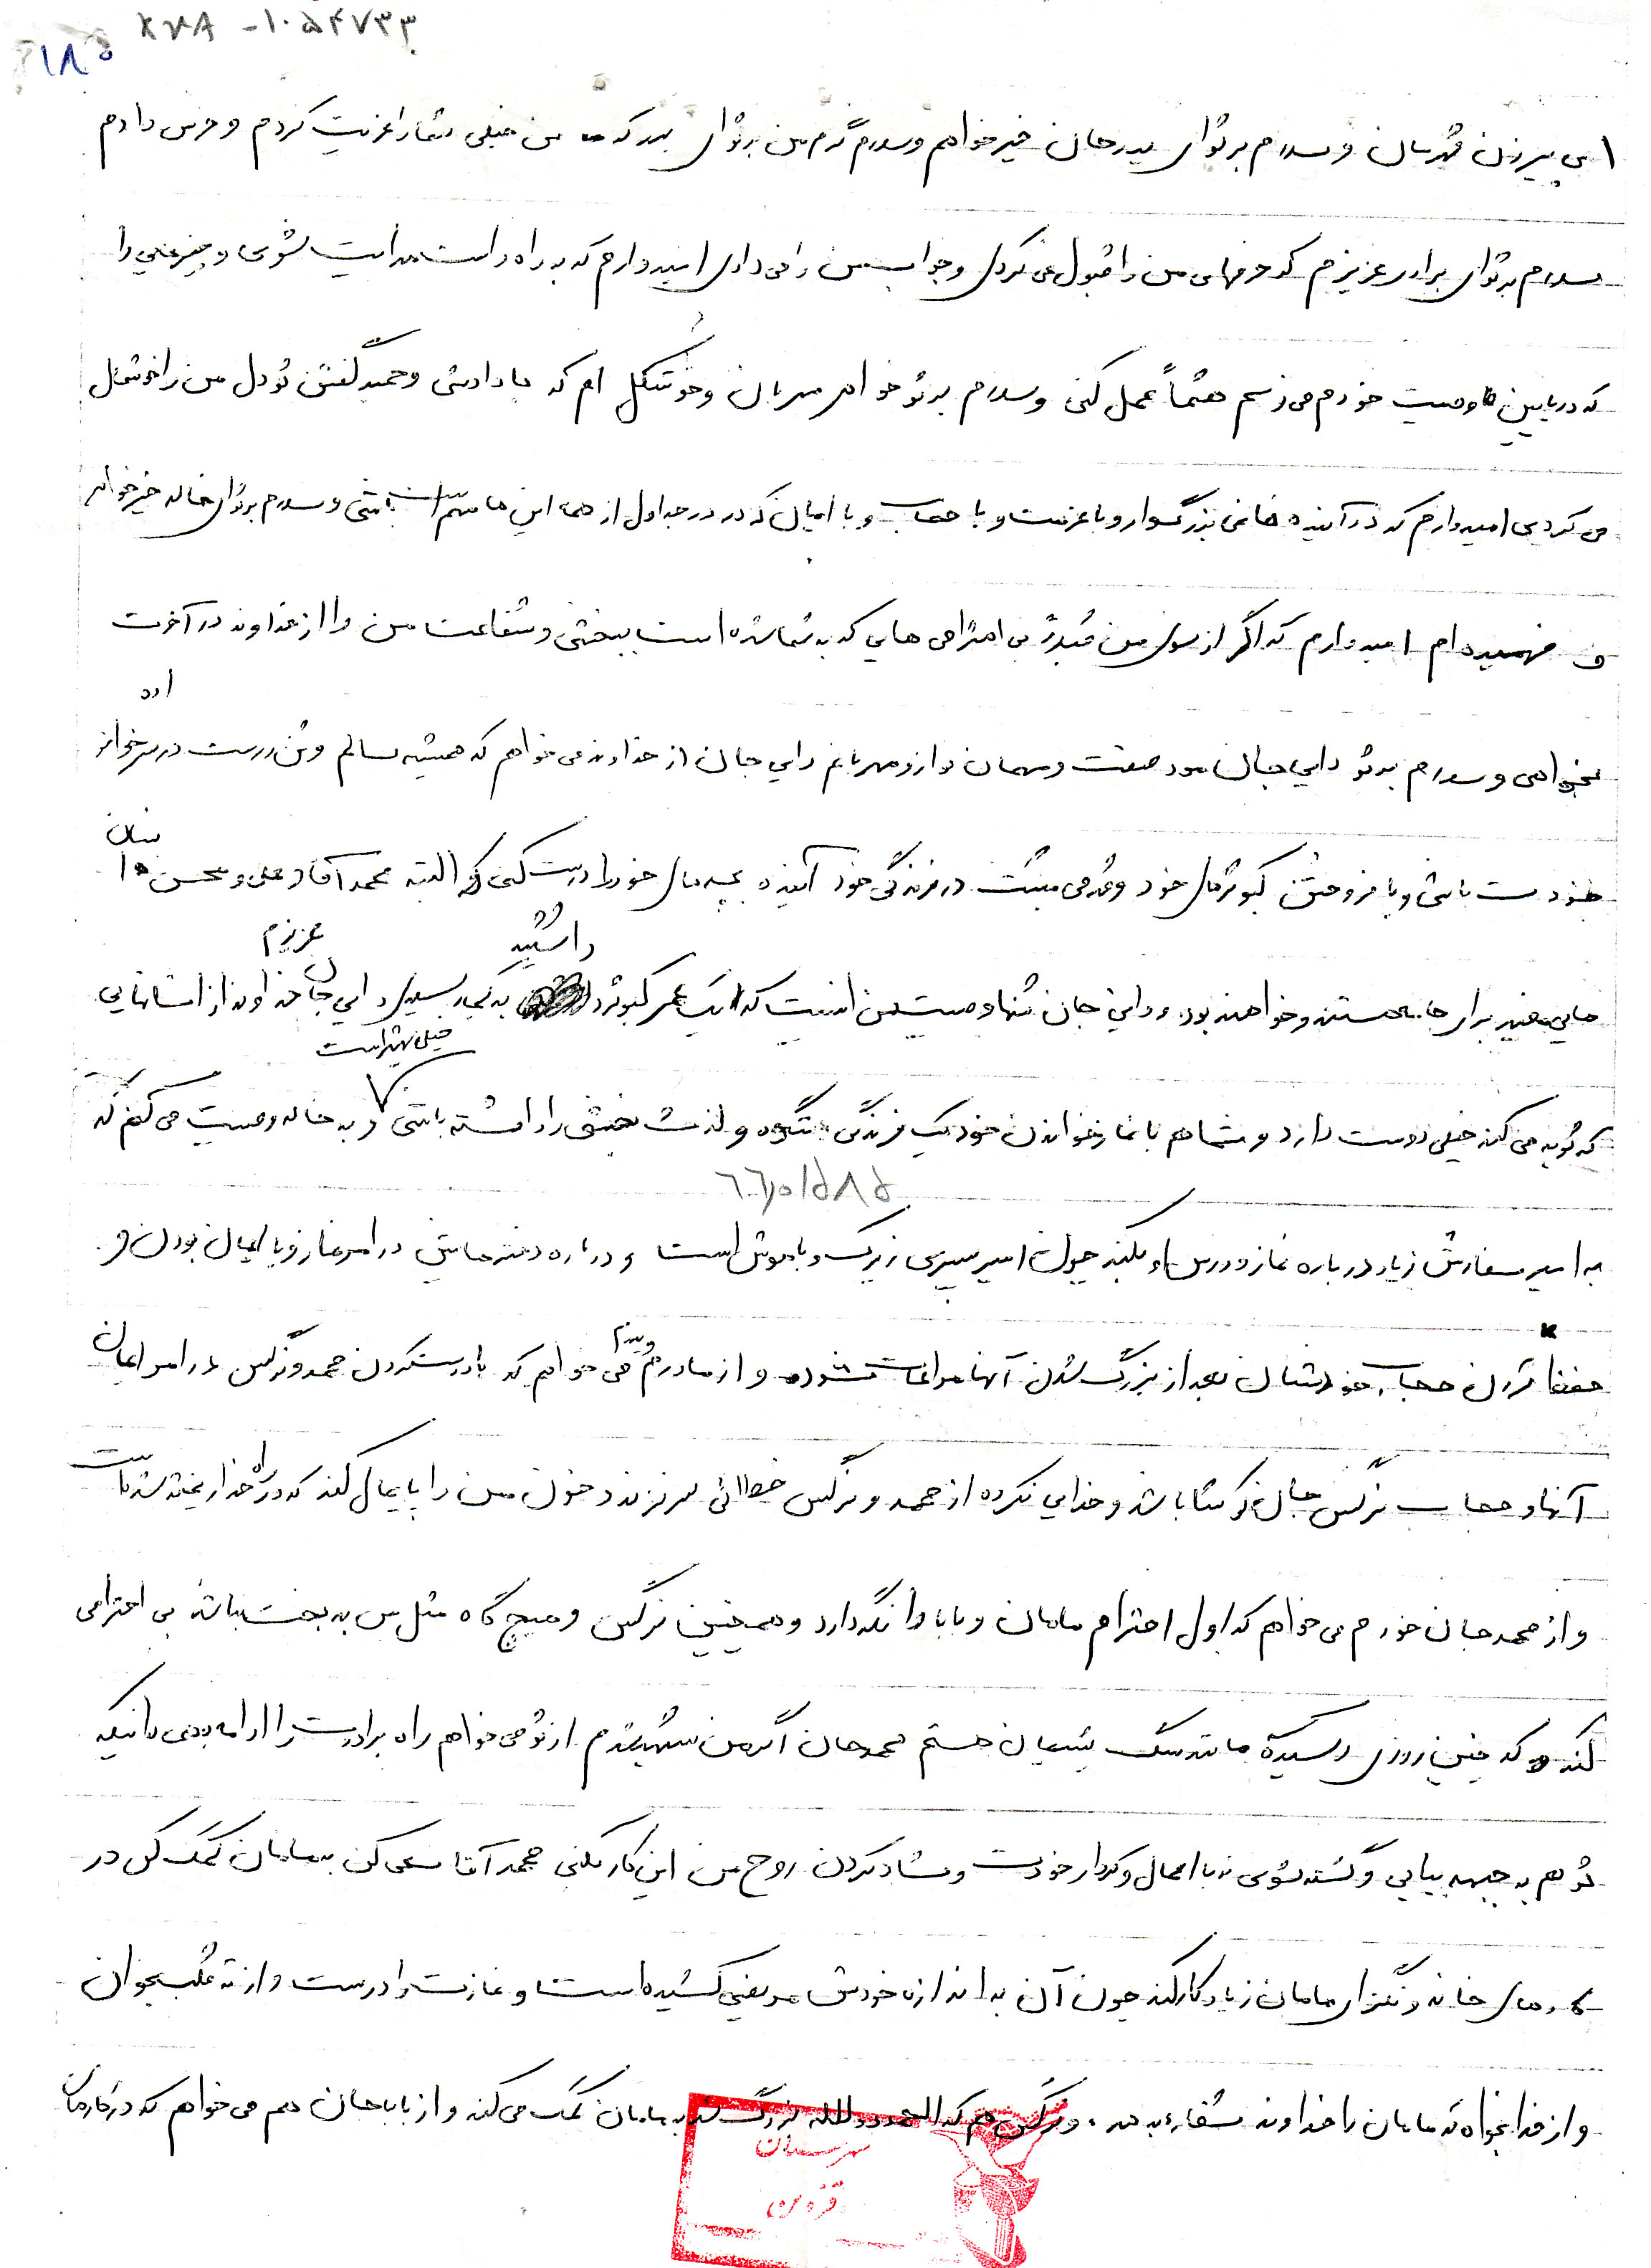 ۱۰۵۴۷۳۳
۱۸۰
ای پیرزن قهرمان و سلام بر توای پدرجان خیرخواهم و سلام گرم من بر توای پدر که من خیلی شما را عزیت کردم و حرس دادم
سلام بر توای برادر عزیزم که حرفهای من را قبول می کردی و جواب من را می دادی امیدوارم که به راه راست هدایت بشوی و چیزهایی را
که در پایین وصیت خودم می نویسم حتماً عمل کنی و سلام بر تو خواهر مهربان و خوشگل ام که با داداشی و حمید گفتن تو دل من را خوشحال
می کردی امیدوارم که در آینده خانمی بزرگوار و با عزت و با حجاب و با ایمان که در درجه اول از همه این ها مهم است باشی و سلام بر توای خاله خیرخواهر
و فهمیده ام امیدوارم که اگر از سوی من بی احترامی هایی که به شما شده است ببخشی و شفاعت من را از خداوند در آخرت
بخواهی و سلام بر تو دایی جان مهمان نواز و مهربانم دایی جان از خداوند می خواهم که همیشه سالم و تن درست در سر خانواده
خودت باشی و با فروختن کبوترهای خود وقدمی مثبت در زندگی خود آینده بچه های خود را درست کنی که البته محمد آقا و علی و محسن انسان
هایی مفید برای جامعه هستند و خواهند بود. و دایی جان تنها وصیت من اینست که یک عمر کبوتر داشتید به کجا رسیدی دایی جان عزیزم خداوند از انسانهایی
که توبه می کند خیلی دوست دارد و شما هم با نماز خواندن خود یک زندگی و لذت بخشی را داشته باشی خیلی بهتر است و به خاله وصیت می کنم که
۶۶۱۰/۵۸۵
به امیر سفارش زیاد درباره نماز و درس او بکند چون امیر پسری زیرک و باهوش است و درباره دخترهایش در امر نماز و با ایمان بودن و
حفظ کردن حجاب خودشان بعد از بزرگ شدن آنها مراعات شود و از مادرم و پدرم می خواهم که با درست کردن محمد و نرگس در امر ایمان
آنها و حجاب نرگس جان کوشا باشد و خدایی نکرده از محمد و نرگس خطائی سر نزند و خون من را پایمال کند که در راه خدا ریخته شده است
و از محمد جان خودم می خواهم که اول احترام مامان و بابا را نگه دارد و همچنین نرگس و هیچ گاه مثل من بدبخت نباشد بی احترامی
کند که چنین روزی رسیده مانند سگ پشیمان هستم محمد جان اگر من شهید شدم از تو می خواهم راه برادرت را ادامه بدهی نه اینکه
تو هم به جبهه بیایی و کشته شوی نه با اعمال و کردار خودت و شاد کردن روح من این کار بکنی محمد آقا سعی کن به مامان کمک کن در
کارهای خانه و نگزار مامان زیاد کار کند چون آن به اندازه خودش مریضی کشیده است و نمازت را درست و از ته قلب بخوان
و از خدا بخواه که مامان را خداوند شفاء بدهد. و نرگس هم که الحمدلله بزرگ شد به مامان کمک می کند و از بابا جان هم می خواهم که در کارهای
شهرستان
قزوین